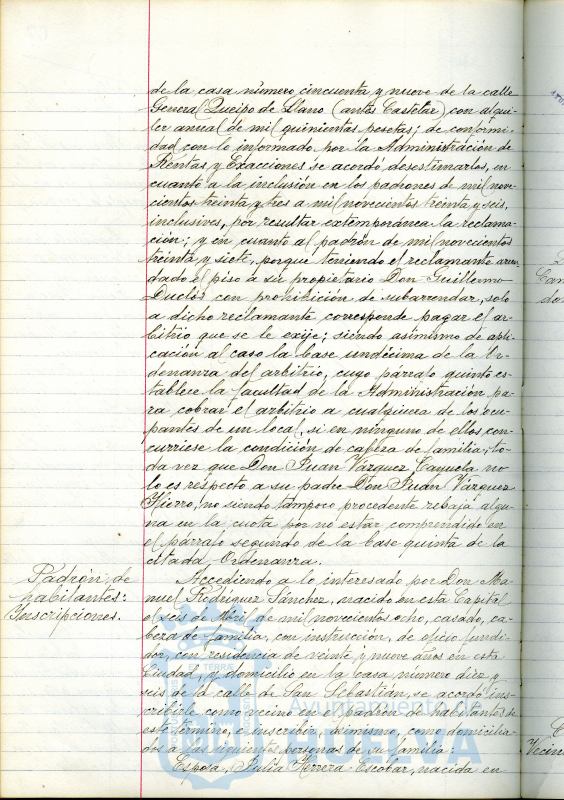 de la casa número cincuenta y nueve de la calle
General Queipo de Llano (antes Castelar) con alqui-
ler anual de mil quinientas pesetas; de conformi-
dad con lo informado por la Administración de
Rentas y Exacciones se acordó desestimarlos, en
cuanto a la inclusión en los padrones de mil nove-
cientos treinta y tres a mil novecientos treinta y seis,
inclusives, por resultar extemporánea la reclama-
ción; y en cuanto al padrón de mil novecientos
treinta y siete, porque teniendo el reclamante arren-
dado el piso a su propietario Don Guillermo
Duclós con prohibición de subarrendar, solo
a dicho reclamante corresponde pagar el ar-
bitrio que se le exije; siendo asimismo de apli-
cación al caso la base undécima de la Or-
denanza del arbitrio, cuyo párrafo quinto es-
tablece la facultad de la Administración pa-
ra cobrar el arbitrio a cualquiera de los ocu-
pantes de un local, si en ninguno de ellos con-
curriese la condición de cabeza de familia; to-
da vez que Don Juan Vázquez Cayuela no
lo es respecto a su padre Don Juan Vázquez
Fierro, no siendo tampoco procedente rebaja algu-
na en la cuota por no estar comprendido en
el párrafo segundo de la base quinta de la
citada Ordenanza.
Padrón de
habitantes:
Inscripciones.
Accediendo a lo interesado por Don Ma-
nuel Rodríguez Sánchez, nacido en esta Capital
el seis de Abril de mil novecientos ocho, casado, ca-
beza de familia, con instrucción, de oficio fundi-
dor, con residencia de veinte y nueve años en esta
Ciudad, y domicilio en la casa número diez y
seis de la calle de San Sebastián, se acordó ins-
cribirle como vecino en el padrón de habitantes de
este término, e inscribir, asimismo, como domicilia-
dos a las siguientes personas de su familia:
Esposa, Julia Herrera Escobar, nacida en
Ayuntamiento de
HUELVA